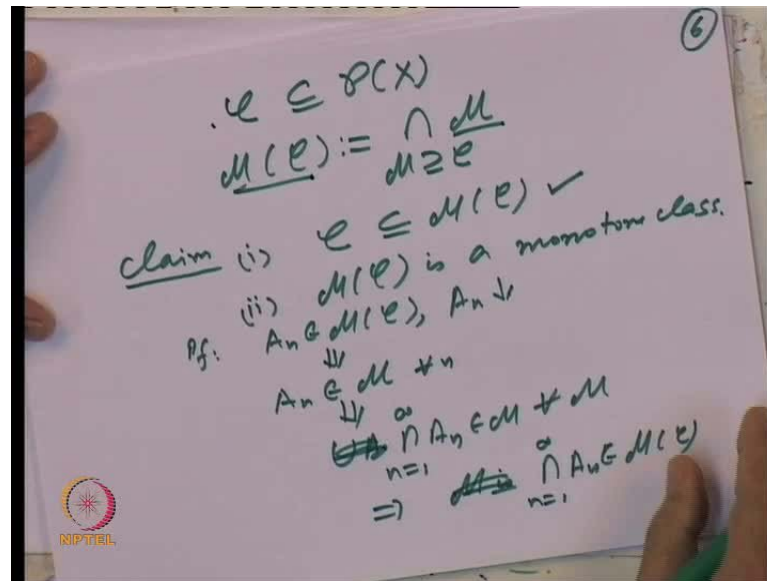 6
𝒞 ⊆ 𝒫(X)
ℳ(𝒞) := ∩ ℳ
ℳ ⊇ 𝒞
Claim (i) 𝒞 ⊆ ℳ(𝒞) ✓
(ii) ℳ(𝒞) is a monotone class.
Pf: Aₙ ∈ ℳ(𝒞), Aₙ ↓
⇓
Aₙ ∈ ℳ ∀ n
⇓ ∞
∩ Aₙ ∈ ℳ ∀ ℳ
n=1
∞
⇒ ∩ Aₙ ∈ ℳ(𝒞)
n=1
NPTEL